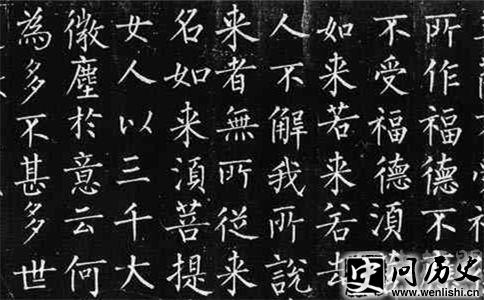 所作福德不
不受福德須
如来若来若去
人不解我所說
来者無所從来
名如来湏菩提
女人以三千大
微塵於意云何
為多不甚多世
史问历史
www.wenlishi.cn